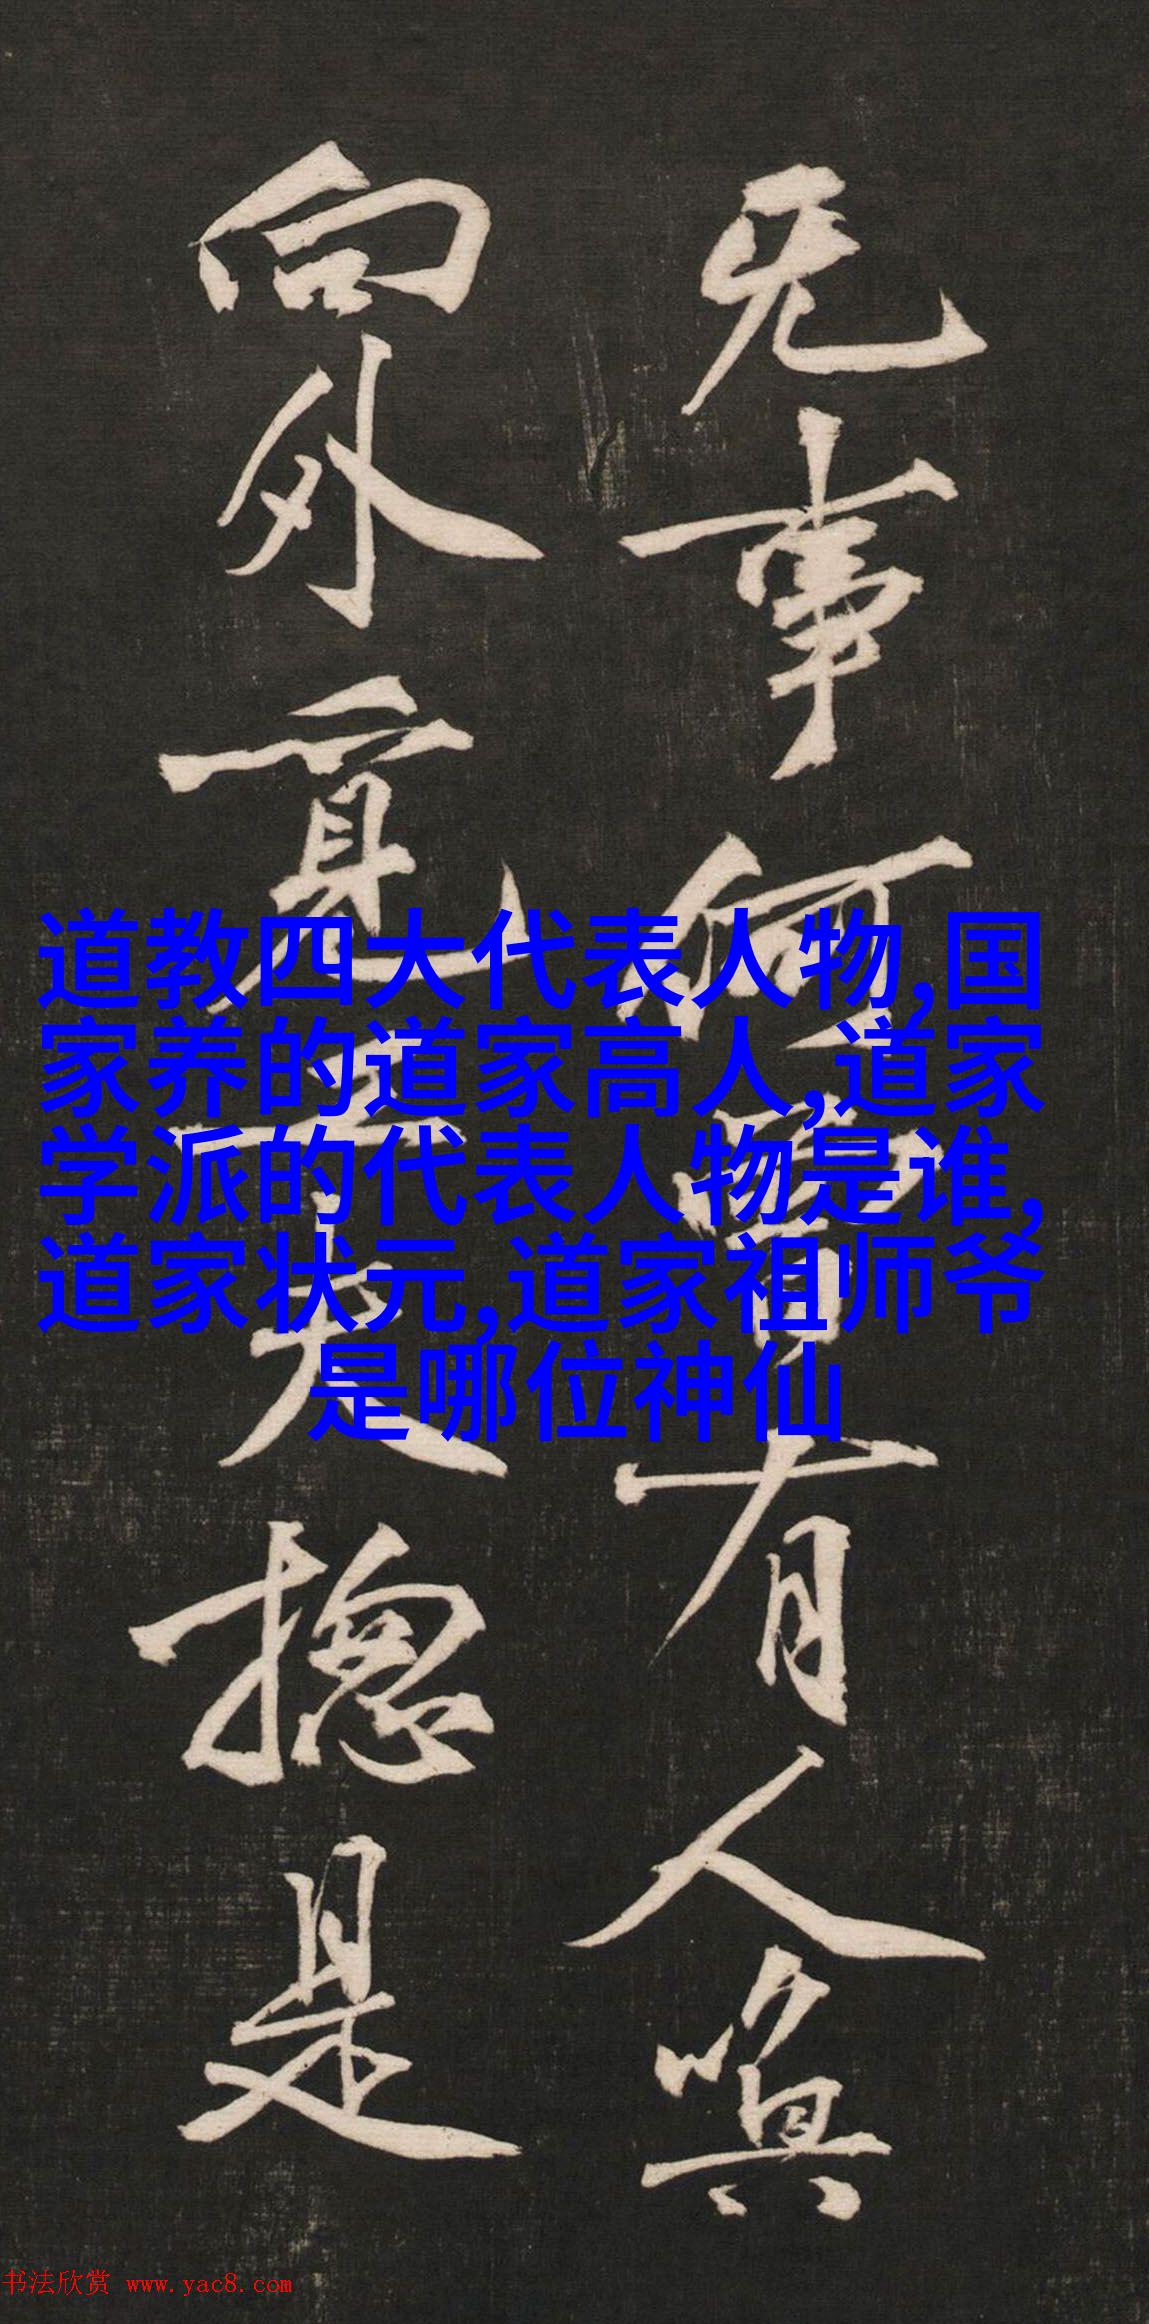 旡事何有人喚
向外覔工夫揔是
道教四大代表人物,国
家养的道家高人,道家
学派的代表人物是谁,
道家状元,道家祖师爷
是哪位神仙
书法欣赏 www.yac8.com